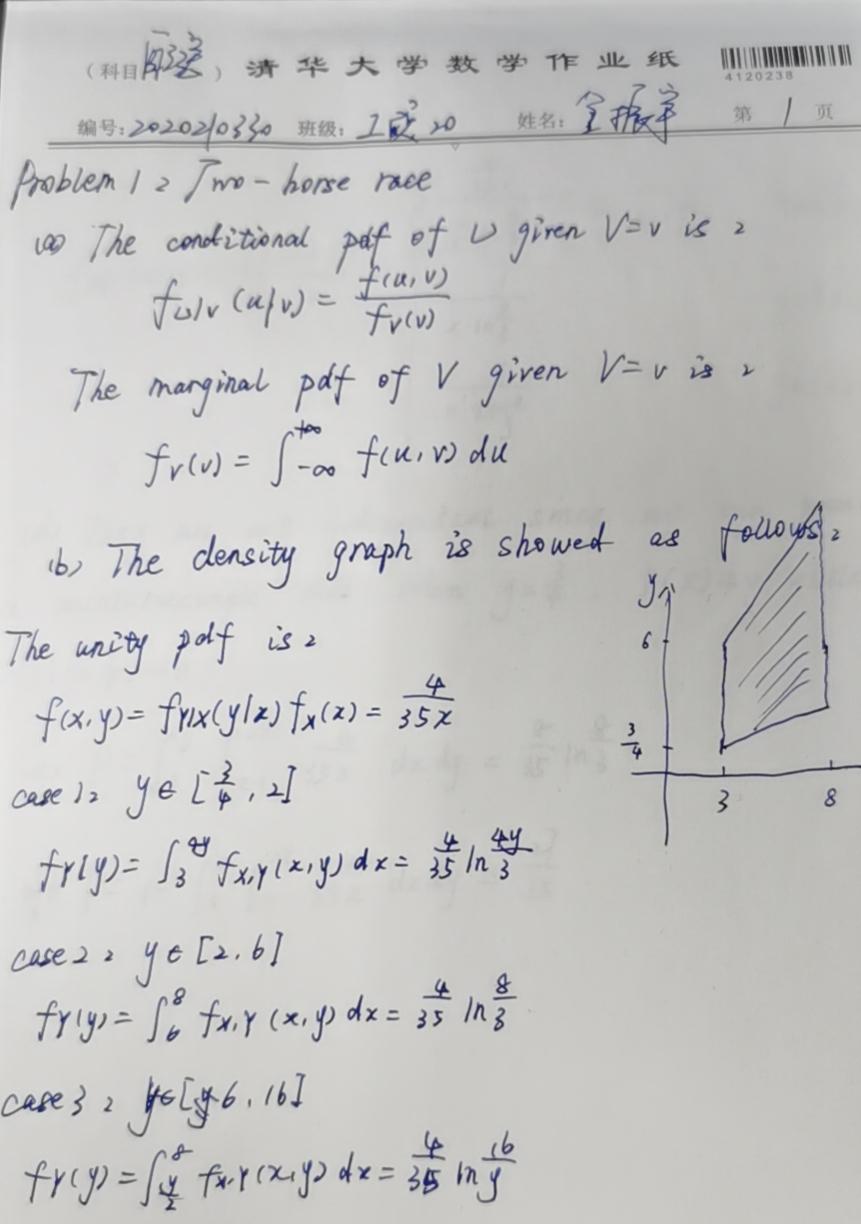 (科目 ) 清华大学数学作业纸
4120238
编号: 2020210330 班级: 工 20 姓名: 金振宇 第 1 页
Problem 1: Two-horse race
(a) The conditional pdf of U given V=v is :
f_{U|V}(u|v) = \frac{f(u,v)}{f_V(v)}
The marginal pdf of V given V=v is :
f_V(v) = ∫_{-∞}^{+∞} f(u,v) du
(b) The density graph is showed as follows:
y
6
3/4
3 8
The unity pdf is :
f(x,y) = f_{Y|X}(y|x) f_X(x) = \frac{4}{35x}
case 1: y ∈ [3/4, 2]
f_Y(y) = ∫_3^{4y} f_{X,Y}(x,y) dx = \frac{4}{35} ln \frac{4y}{3}
case 2: y ∈ [2, 6]
f_Y(y) = ∫_6^8 f_{X,Y}(x,y) dx = \frac{4}{35} ln \frac{8}{3}
case 3: y ∈ [6, 16]
f_Y(y) = ∫_{y/2}^8 f_{X,Y}(x,y) dx = \frac{4}{35} ln \frac{16}{y}